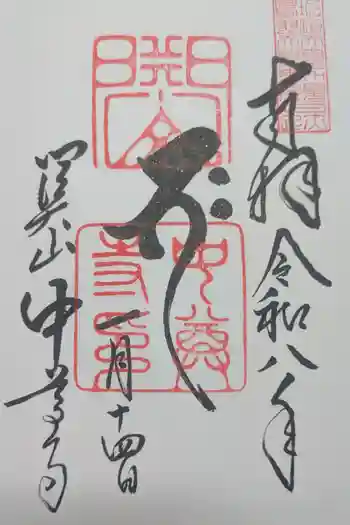 奉拝
令和八年
一月十四日
関山
中尊寺
中尊寺印